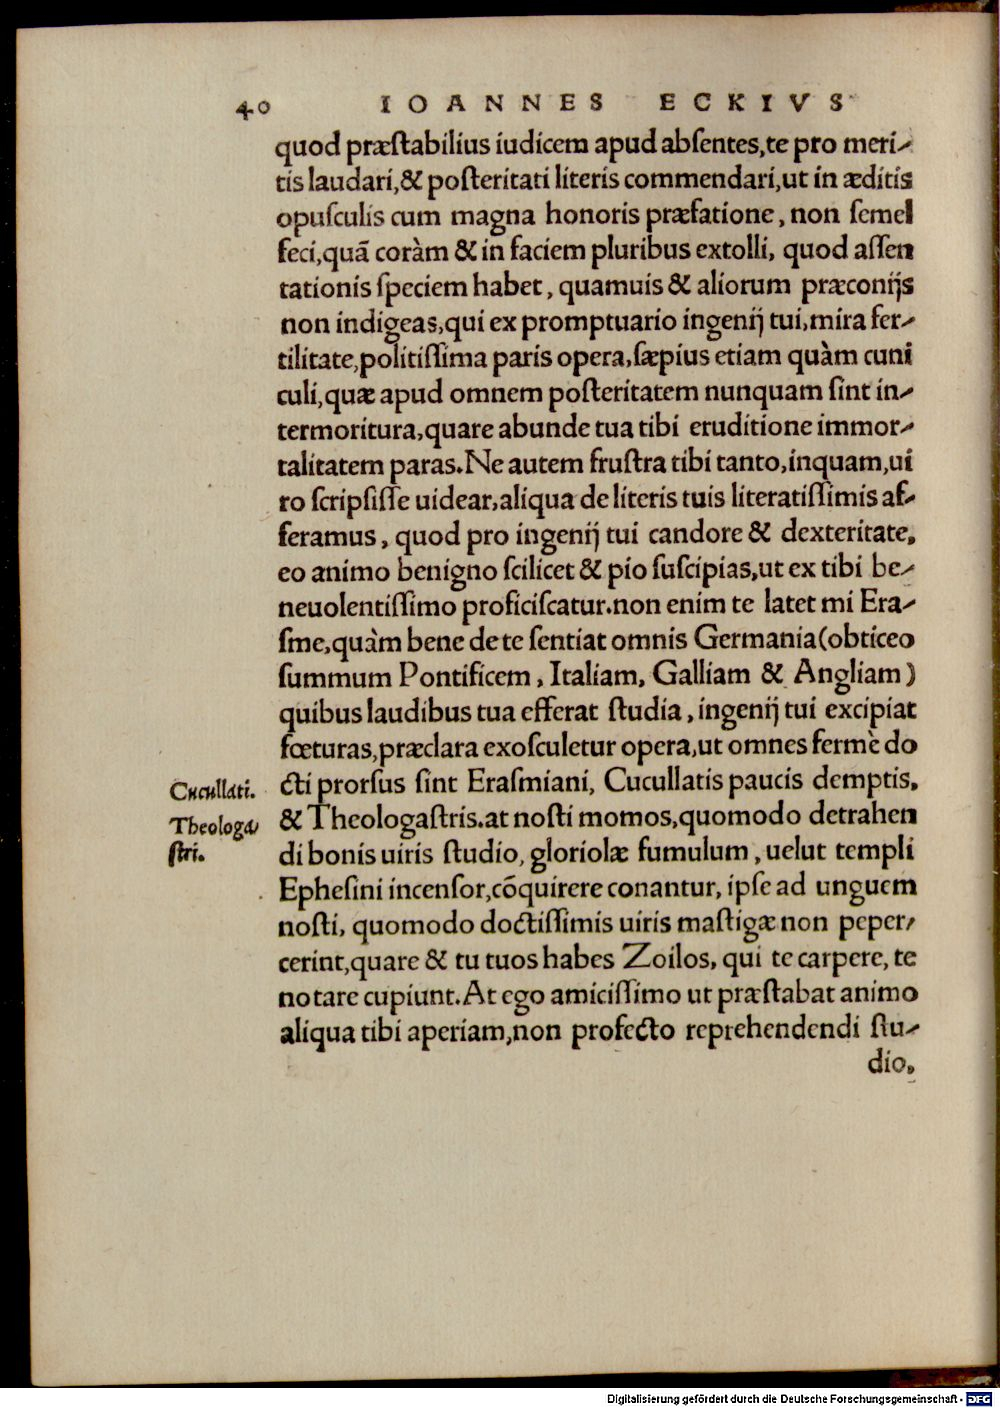 40 IOANNES ECKIVS
quod præſtabilius iudicem apud abſentes, te pro meri-
tis laudari, & poſteritati literis commendari, ut in æditis
opuſculis cum magna honoris præfatione, non ſemel
feci, quã coràm & in faciem pluribus extolli, quod aſſen
tationis ſpeciem habet, quamuis & aliorum præconijs
non indigeas, qui ex promptuario ingenij tui, mira fer-
tilitate, politiſſima paris opera, ſæpius etiam quàm cuni
culi, quæ apud omnem poſteritatem nunquam ſint in-
termoritura, quare abunde tua tibi eruditione immor-
talitatem paras. Ne autem fruſtra tibi tanto, inquam, ui
ro ſcripſiſſe uidear, aliqua de literis tuis literatiſſimis af-
feramus, quod pro ingenij tui candore & dexteritate,
eo animo benigno ſcilicet & pio ſuſcipias, ut ex tibi be-
neuolentiſſimo proficiſcatur. non enim te latet mi Era-
ſme, quàm bene de te ſentiat omnis Germania (obticeo
ſummum Pontificem, Italiam, Galliam & Angliam)
quibus laudibus tua efferat ſtudia, ingenij tui excipiat
fœturas, præclara exoſculetur opera, ut omnes fermè do
Cucullati. cti prorſus ſint Eraſmiani, Cucullatis paucis demptis,
Theologa- & Theologaſtris. at noſti momos, quomodo detrahen
ſtri. di bonis uiris ſtudio, gloriolæ fumulum, uelut templi
Epheſini incenſor, cõquirere conantur, ipſe ad unguem
noſti, quomodo doctiſſimis uiris maſtigæ non peper-
cerint, quare & tu tuos habes Zoilos, qui te carpere, te
notare cupiunt. At ego amiciſſimo ut præſtabat animo
aliqua tibi aperiam, non profecto reprehendendi ſtu-
dio,
Digitalisierung gefördert durch die Deutsche Forschungsgemeinschaft - DFG